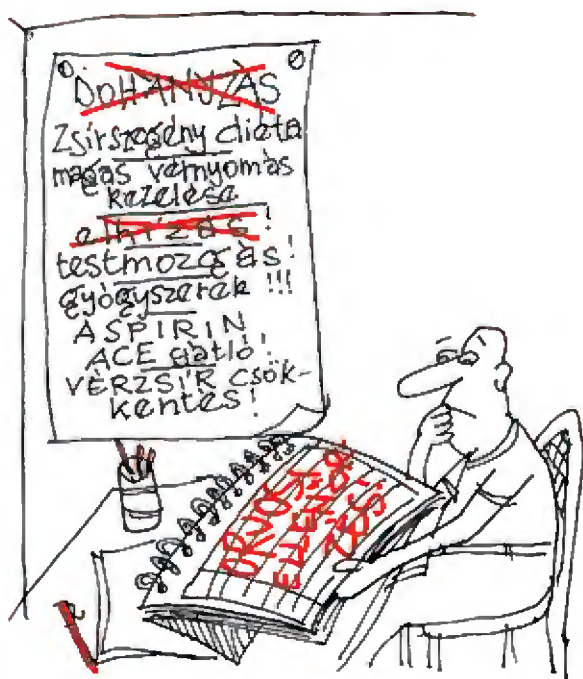 DOHÁNYZÁS
Zsírszegény diéta
magas vérnyomás
kezelése
elhízás!
testmozgás!
gyógyszerek!!!
ASPIRIN
ACE gátló!
VÉRZSÍR csök-
kentés!
ORVOSI
ELLENŐR
ZÉS!